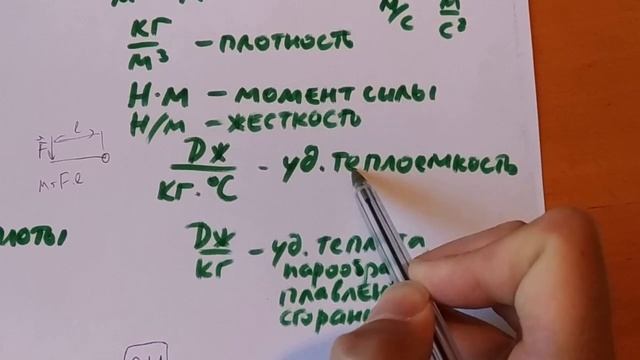 м/с м/с²
кг/м³ – плотность
Н·м – момент силы
Н/м – жесткость
F l
M=F·l
Дж/кг·°С – уд. теплоемкость
Дж/кг – уд. теплота
плавлен